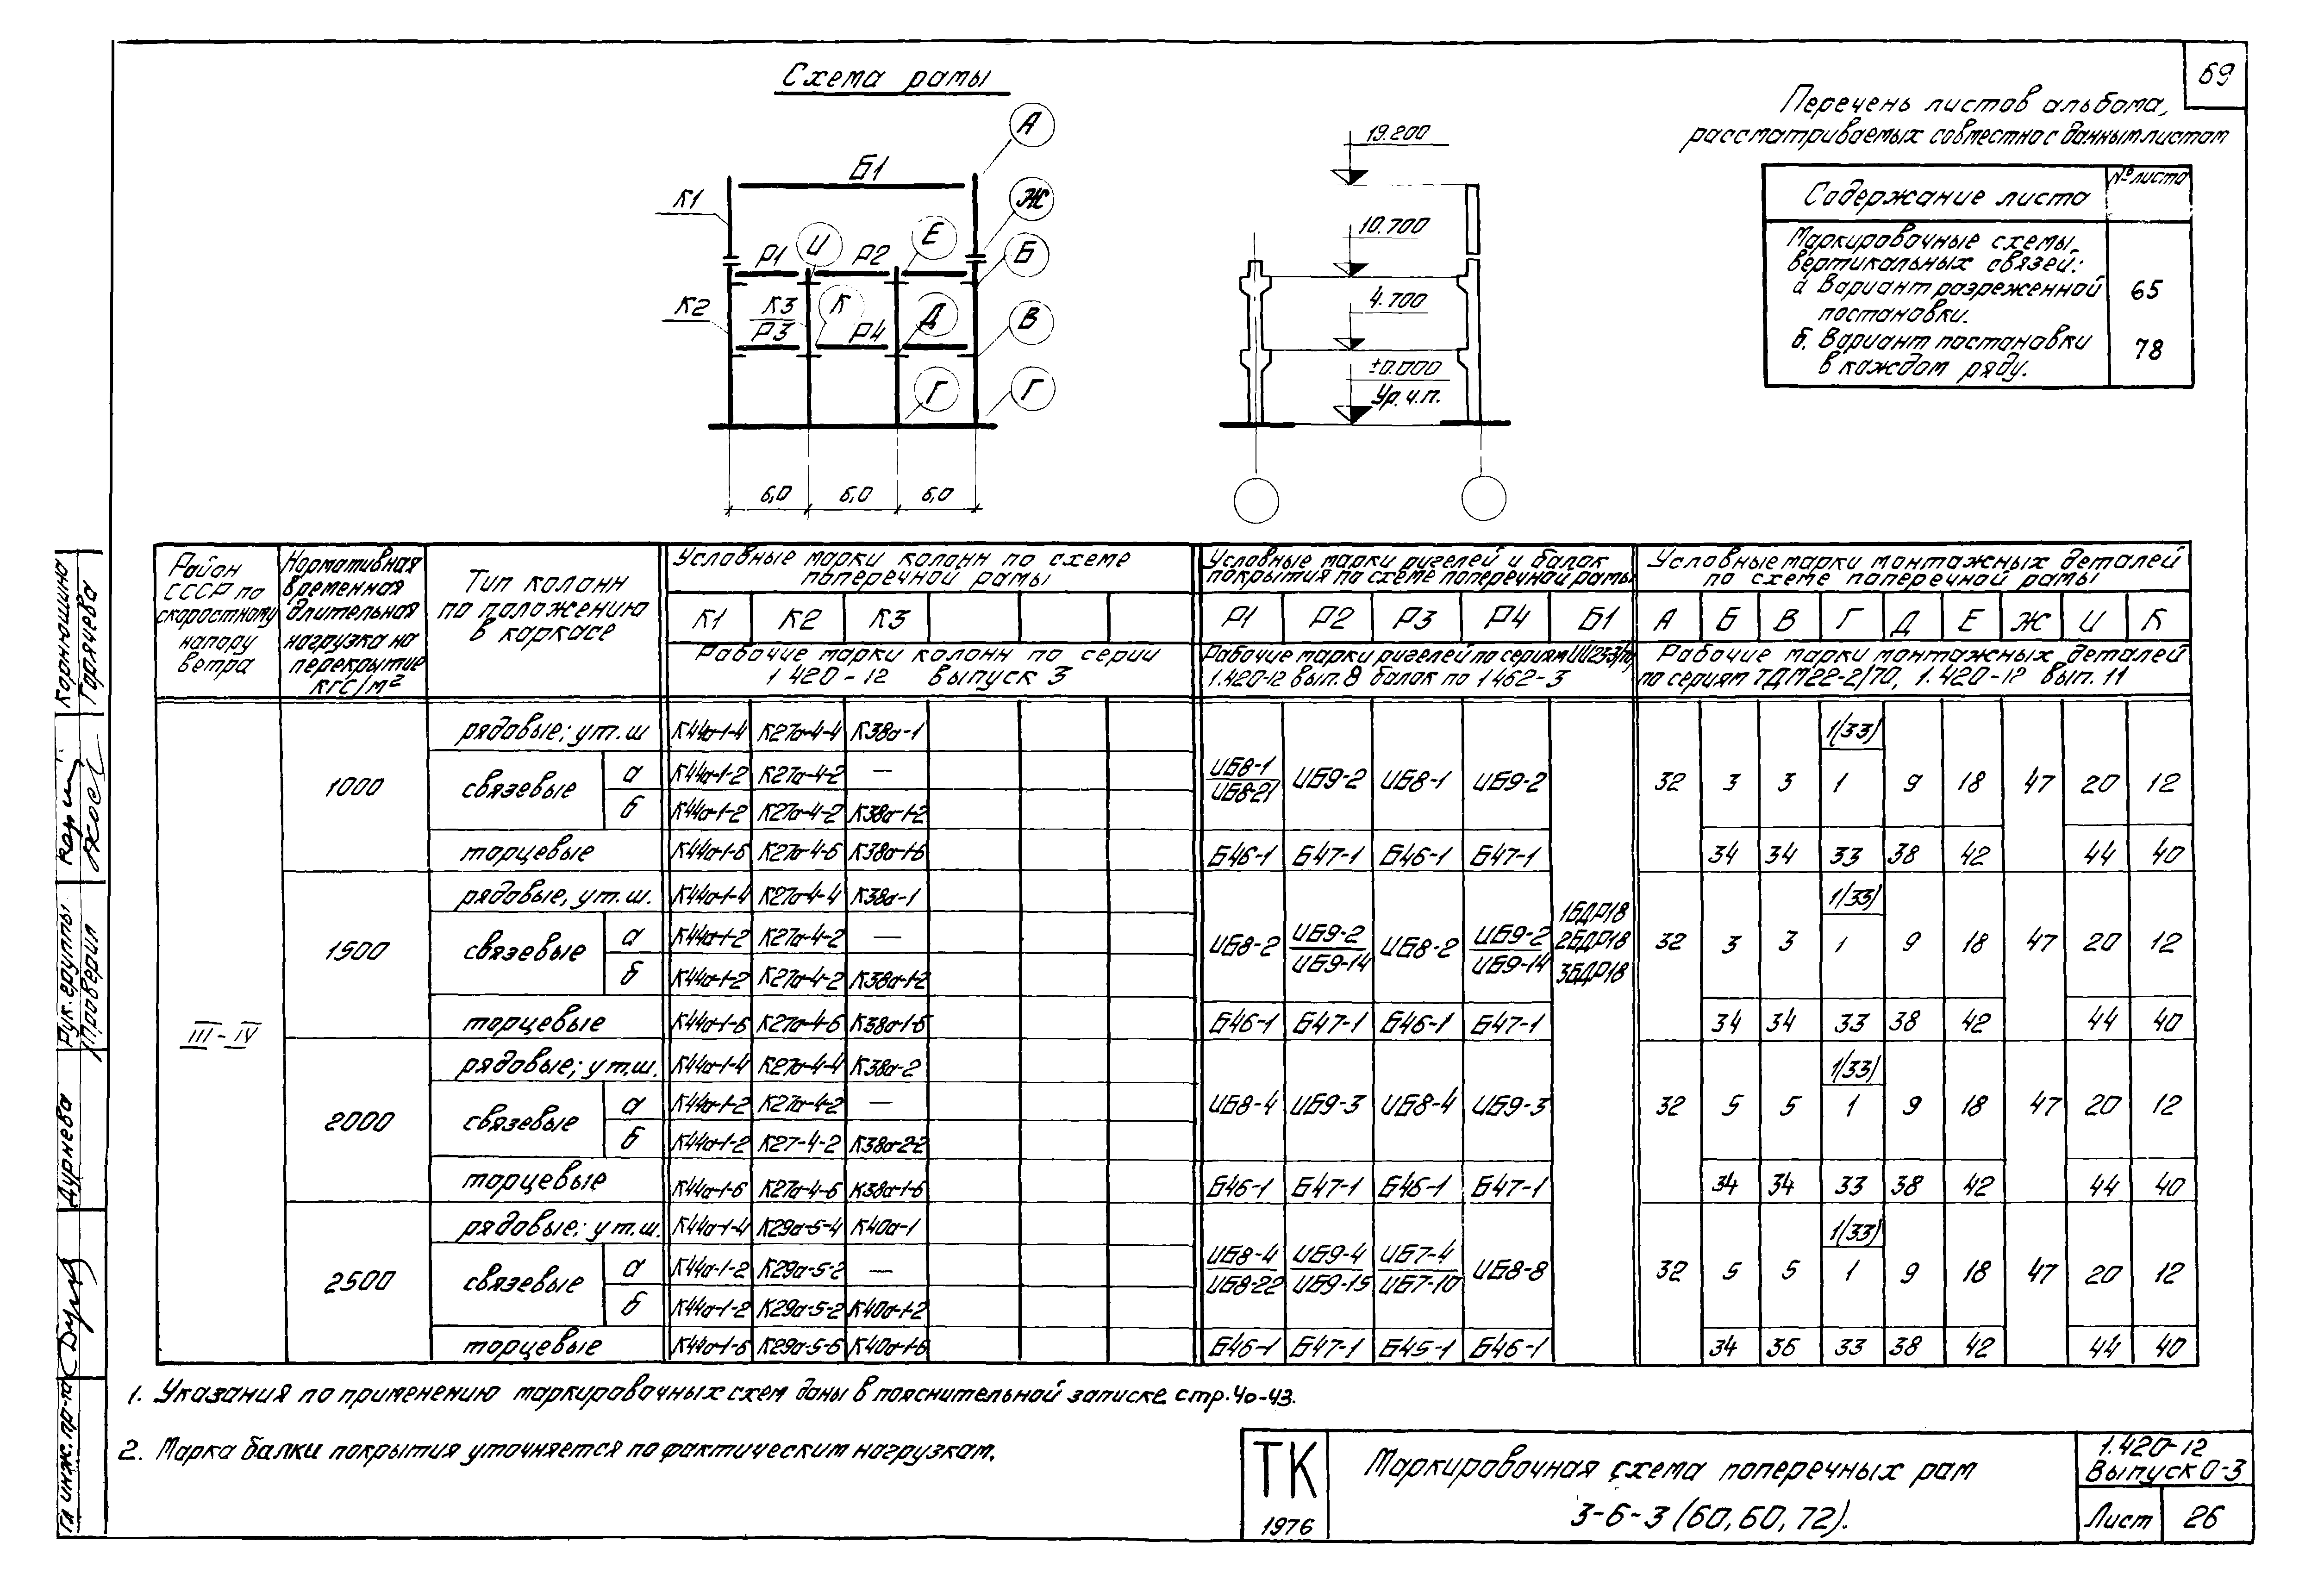 69
Схема рамы
Перечень листов альбома,
рассматриваемых совместно с данным листом
Содержание листа
№ листа
Маркировочные схемы
вертикальных связей:
а Вариант разреженной
постановки.
65
б. Вариант постановки
в каждом ряду.
78
А
Б1
К1
Ж
Р1
И
Р2
Е
Б
К2
К3
К
Р3
Р4
Д
В
Г
Г
6,0
6,0
6,0
19.200
10.700
4.700
±0.000
Ур.ч.п.
Район
СССР по
скоростному
напору
ветра
Нормативная
временная
длительная
нагрузка на
перекрытие
кгс/м²
Тип колонн
по положению
в каркасе
Условные марки колонн по схеме
поперечной рамы
К1 К2 К3
Рабочие марки колонн по серии
1 420-12 выпуск 3
Условные марки ригелей и балок
покрытия по схеме поперечной рамы
Р1 Р2 Р3 Р4 Б1
Рабочие марки ригелей по сериям ИИ23-3/70
1.420-12 вып. 8 балок по 1 462-3
Условные марки монтажных деталей
по схеме поперечной рамы
А Б В Г Д Е Ж И К
Рабочие марки монтажных деталей
по сериям ТДМ22-2/70, 1.420-12 вып. 11
III-IV
1БДР18
2БДР18
3БДР18
1000
рядовые; у т.ш К44а-1-4 К27а-4-4 К38а-1 1(33)
связевые а К44а-1-2 К27а-4-2 —
б К44а-1-2 К27а-4-2 К38а-1-2
ИБ8-1 ИБ9-2 ИБ8-1 ИБ9-2 32 3 3 1 9 18 47 20 12
ИБ8-21
торцевые К44а-1-6 К27а-4-6 К38а-1-6 Б46-1 Б47-1 Б46-1 Б47-1 34 34 33 38 42 44 40
1500
рядовые, у т.ш. К44а-1-4 К27а-4-4 К38а-1 1(33)
связевые а К44а-1-2 К27а-4-2 —
б К44а-1-2 К27а-4-2 К38а-1-2
ИБ8-2 ИБ9-2 ИБ8-2 ИБ9-2 32 3 3 1 9 18 47 20 12
ИБ9-14 ИБ9-14
торцевые К44а-1-6 К27а-4-6 К38а-1-6 Б46-1 Б47-1 Б46-1 Б47-1 34 34 33 38 42 44 40
2000
рядовые; у т.ш. К44а-1-4 К27а-4-4 К38а-2 1(33)
связевые а К44а-1-2 К27а-4-2 —
б К44а-1-2 К27-4-2 К38а-2-2
ИБ8-4 ИБ9-3 ИБ8-4 ИБ9-3 32 5 5 1 9 18 47 20 12
торцевые К44а-1-6 К27а-4-6 К38а-1-6 Б46-1 Б47-1 Б46-1 Б47-1 34 34 33 38 42 44 40
2500
рядовые; у т.ш. К44а-1-4 К29а-5-4 К40а-1 1(33)
связевые а К44а-1-2 К29а-5-2 —
б К44а-1-2 К29а-5-2 К40а-1-2
ИБ8-4 ИБ9-4 ИБ7-4 ИБ8-8 32 5 5 1 9 18 47 20 12
ИБ8-22 ИБ9-15 ИБ7-10
торцевые К44а-1-6 К29а-5-6 К40а-1-6 Б46-1 Б47-1 Б45-1 Б46-1 34 36 33 38 42 44 40
1. Указания по применению маркировочных схем даны в пояснительной записке стр. 40-43.
2. Марка балки покрытия уточняется по фактическим нагрузкам.
ТК
1976
Маркировочная схема поперечных рам
3-6-3 (60, 60, 72).
1.420-12
Выпуск 0-3
Лист 26
Корнюшина
Горячева
Рук. группы
Проверил
Дурнева
Гл инж. пр-та